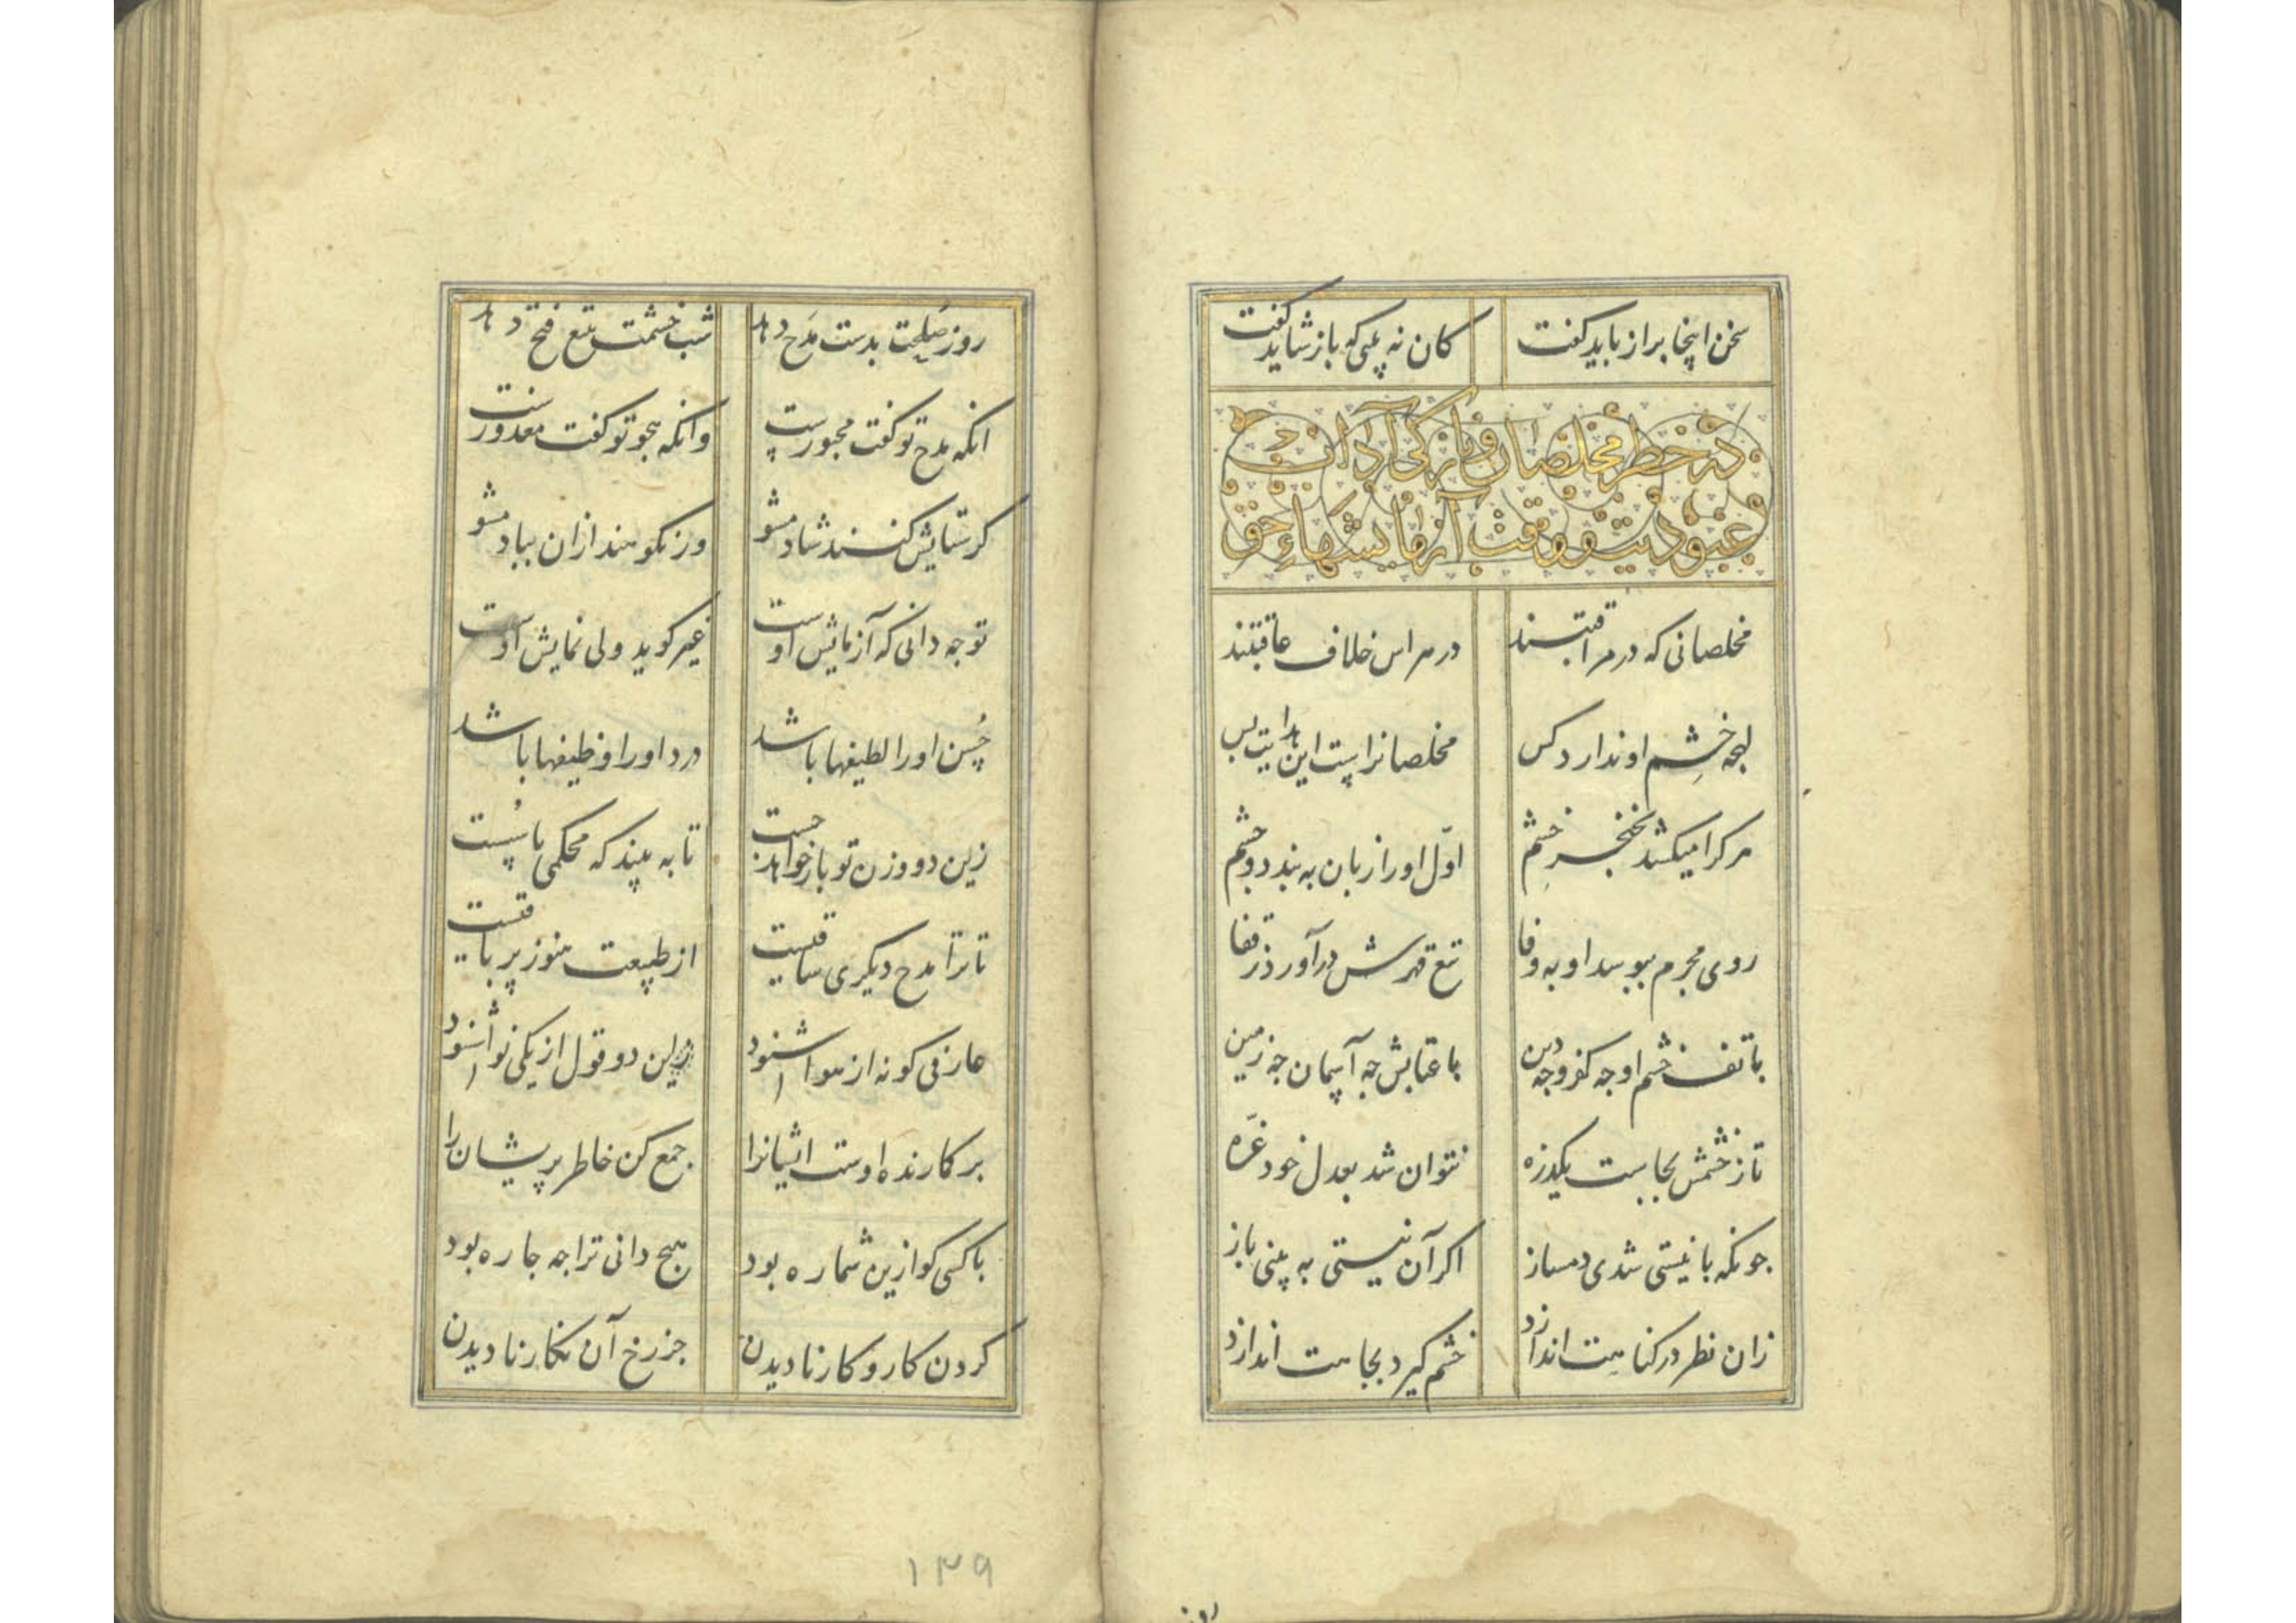 سخن اینجا براز باید کفت کان نه بینی که باز شاید کفت
در خطر مخلصان و بازکی آداب
عبودیت و وقت آزمایشهاء حق
مخلصانی که در مراقبتند در هراس خلاف عاقبتند
لهجه خشم او ندارد کس مخلصانرا است این هدایت بس
هر کرا میکشد بخنجر خشم اول او را زبان به بندد و چشم
روی مجرم ببوسد او به وفا تیغ قهرش در آورد ز قفا
با تف خشم او چه کفر و چه دین با عتابش چه آسمان چه زمین
تا ز خشمش بجاست یکذره نتوان شد بعدل خود غره
جونکه با نیستی شدی دمساز اکر آن نیستی به بینی باز
زان نظر در کناهت اندازد خشم کیرد بجاهت اندازد
روز صلحت بدست مدح دهد شب خشمت تیغ فتح دهد
انکه مدح تو کفت مجبورست وانکه هجو تو کفت معذورست
کر ستایش کنند شاد مشو ور نکوهند ازان بباد مشو
تو جه دانی که آزمایش اوست غیر کوید ولی نمایش اوست
حسن او را لطیفها باشد درد او را وظیفها باشد
زین دو وزن تو باز خواهد جست تا به بیند که محکمی یا سست
تا ترا مدح دیکری ساقیست از طبیعت هنوز پر باقیست
عارفی کو نه از هوا شنود زین دو قول از یکی نوا شنود
بر کارنده اوست اشیانرا جمع کن خاطر پریشان را
با کسی کو ازین شماره بود هیج دانی ترا جه جاره بود
کردن کار و کار نادیدن جز رخ آن نکار نادیدن
۱۳۹